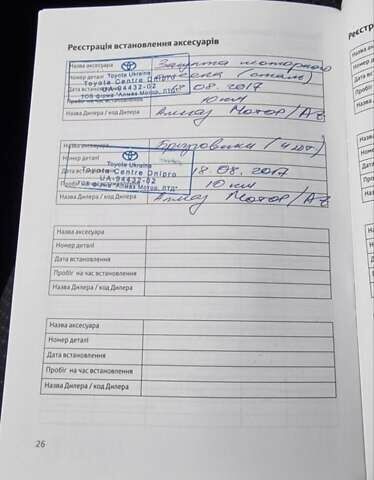 Реєстрація встановлення аксесуарів
Назва аксесуара Защита моторного
Номер деталі отсека (сталь)
Дата встановлення 18.08.2017
Пробіг на час встановлення 10 км
Назва Дилера / код Дилера Алмаз Мотор/
Toyota Ukraine
Toyota Centre Dnipro
UA-94432-02
ТОВ фірма "Алмаз Мотор, ЛТД"
Назва аксесуара Брызговики (4 шт)
Номер деталі
Дата встановлення 18.08.2017
Пробіг 10 км
Назва Дилера / код Дилера Алмаз Мотор/
Toyota Ukraine
Toyota Centre Dnipro
UA-94432-02
ТОВ фірма "Алмаз Мотор, ЛТД"
Назва аксесуара
Номер деталі
Дата встановлення
Пробіг на час встановлення
Назва Дилера / код Дилера
Назва аксесуара
Номер деталі
Дата встановлення
Пробіг на час встановлення
Назва Дилера / код Дилера
26
Реєстр